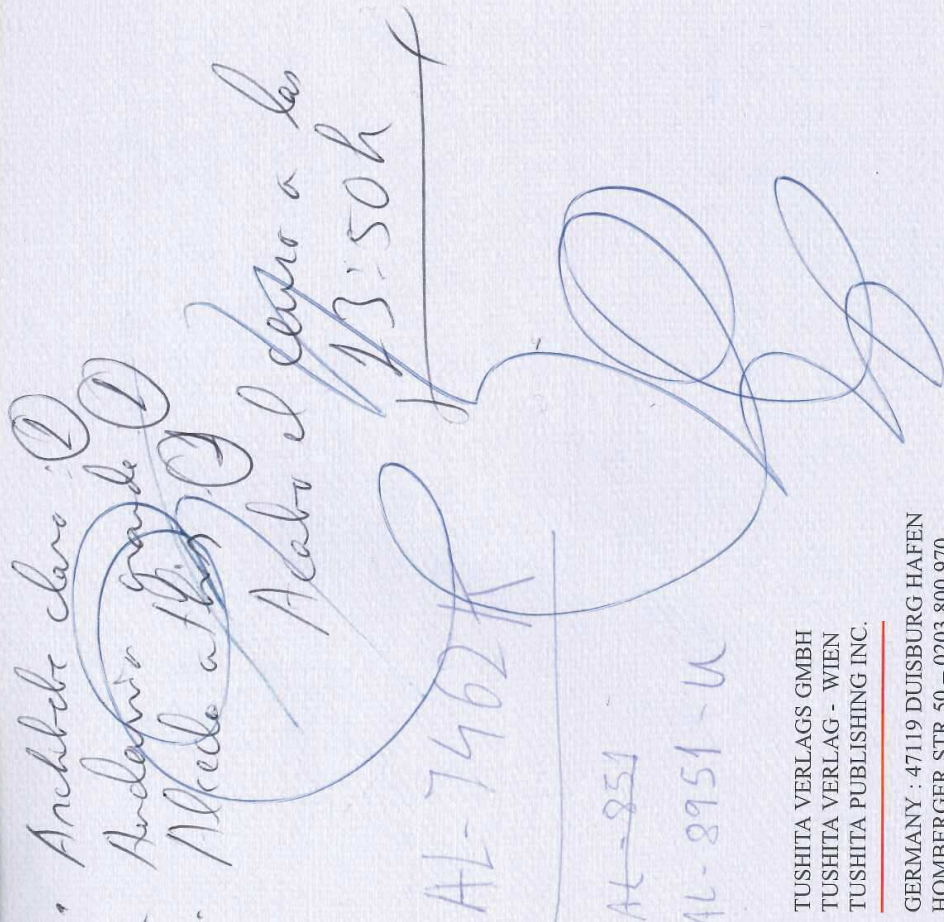 claro (1)
Andamio grande (1)
Alfredo a
Acabo el centro a las
13:50 h
AL-7462 K
AL-851
AL-8951-U
TUSHITA VERLAGS GMBH
TUSHITA VERLAG - WIEN
TUSHITA PUBLISHING INC.
GERMANY : 47119 DUISBURG HAFEN
HOMBERGER STR. 50 – 0203 800 970